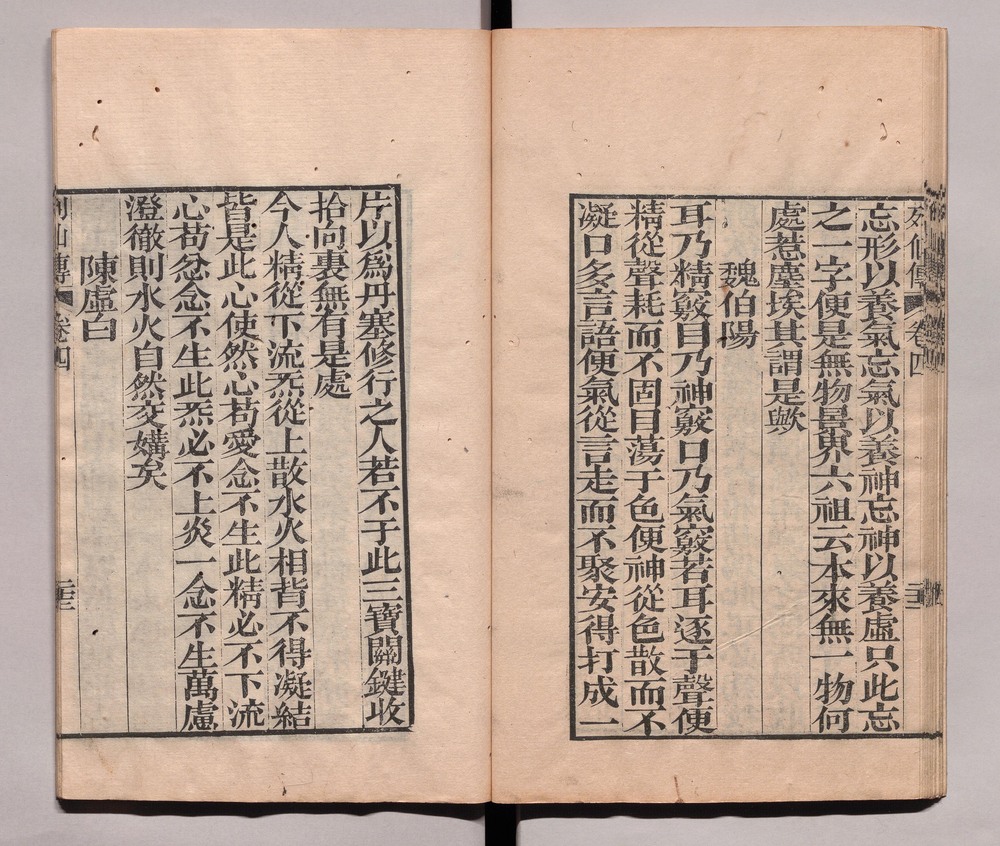 列仙傳 卷四
忘形以養氣忘氣以養神忘神以養虛只此忘
之一字便是無物景界六祖云本來無一物何
處惹塵埃其謂是歟
魏伯陽
耳乃精竅目乃神竅口乃氣竅若耳逐于聲便
精從聲耗而不固目蕩于色便神從色散而不
凝口多言語便氣從言走而不聚安得打成一
片以爲丹塞修行之人若不于此三寶關鍵收
拾向裏無有是處
今人精從下流炁從上散水火相背不得凝結
皆是此心使然心苟愛念不生此精必不下流
心苟忿念不生此炁必不上炎一念不生萬慮
澄徹則水火自然交媾矣
陳虛白
列仙傳 卷四